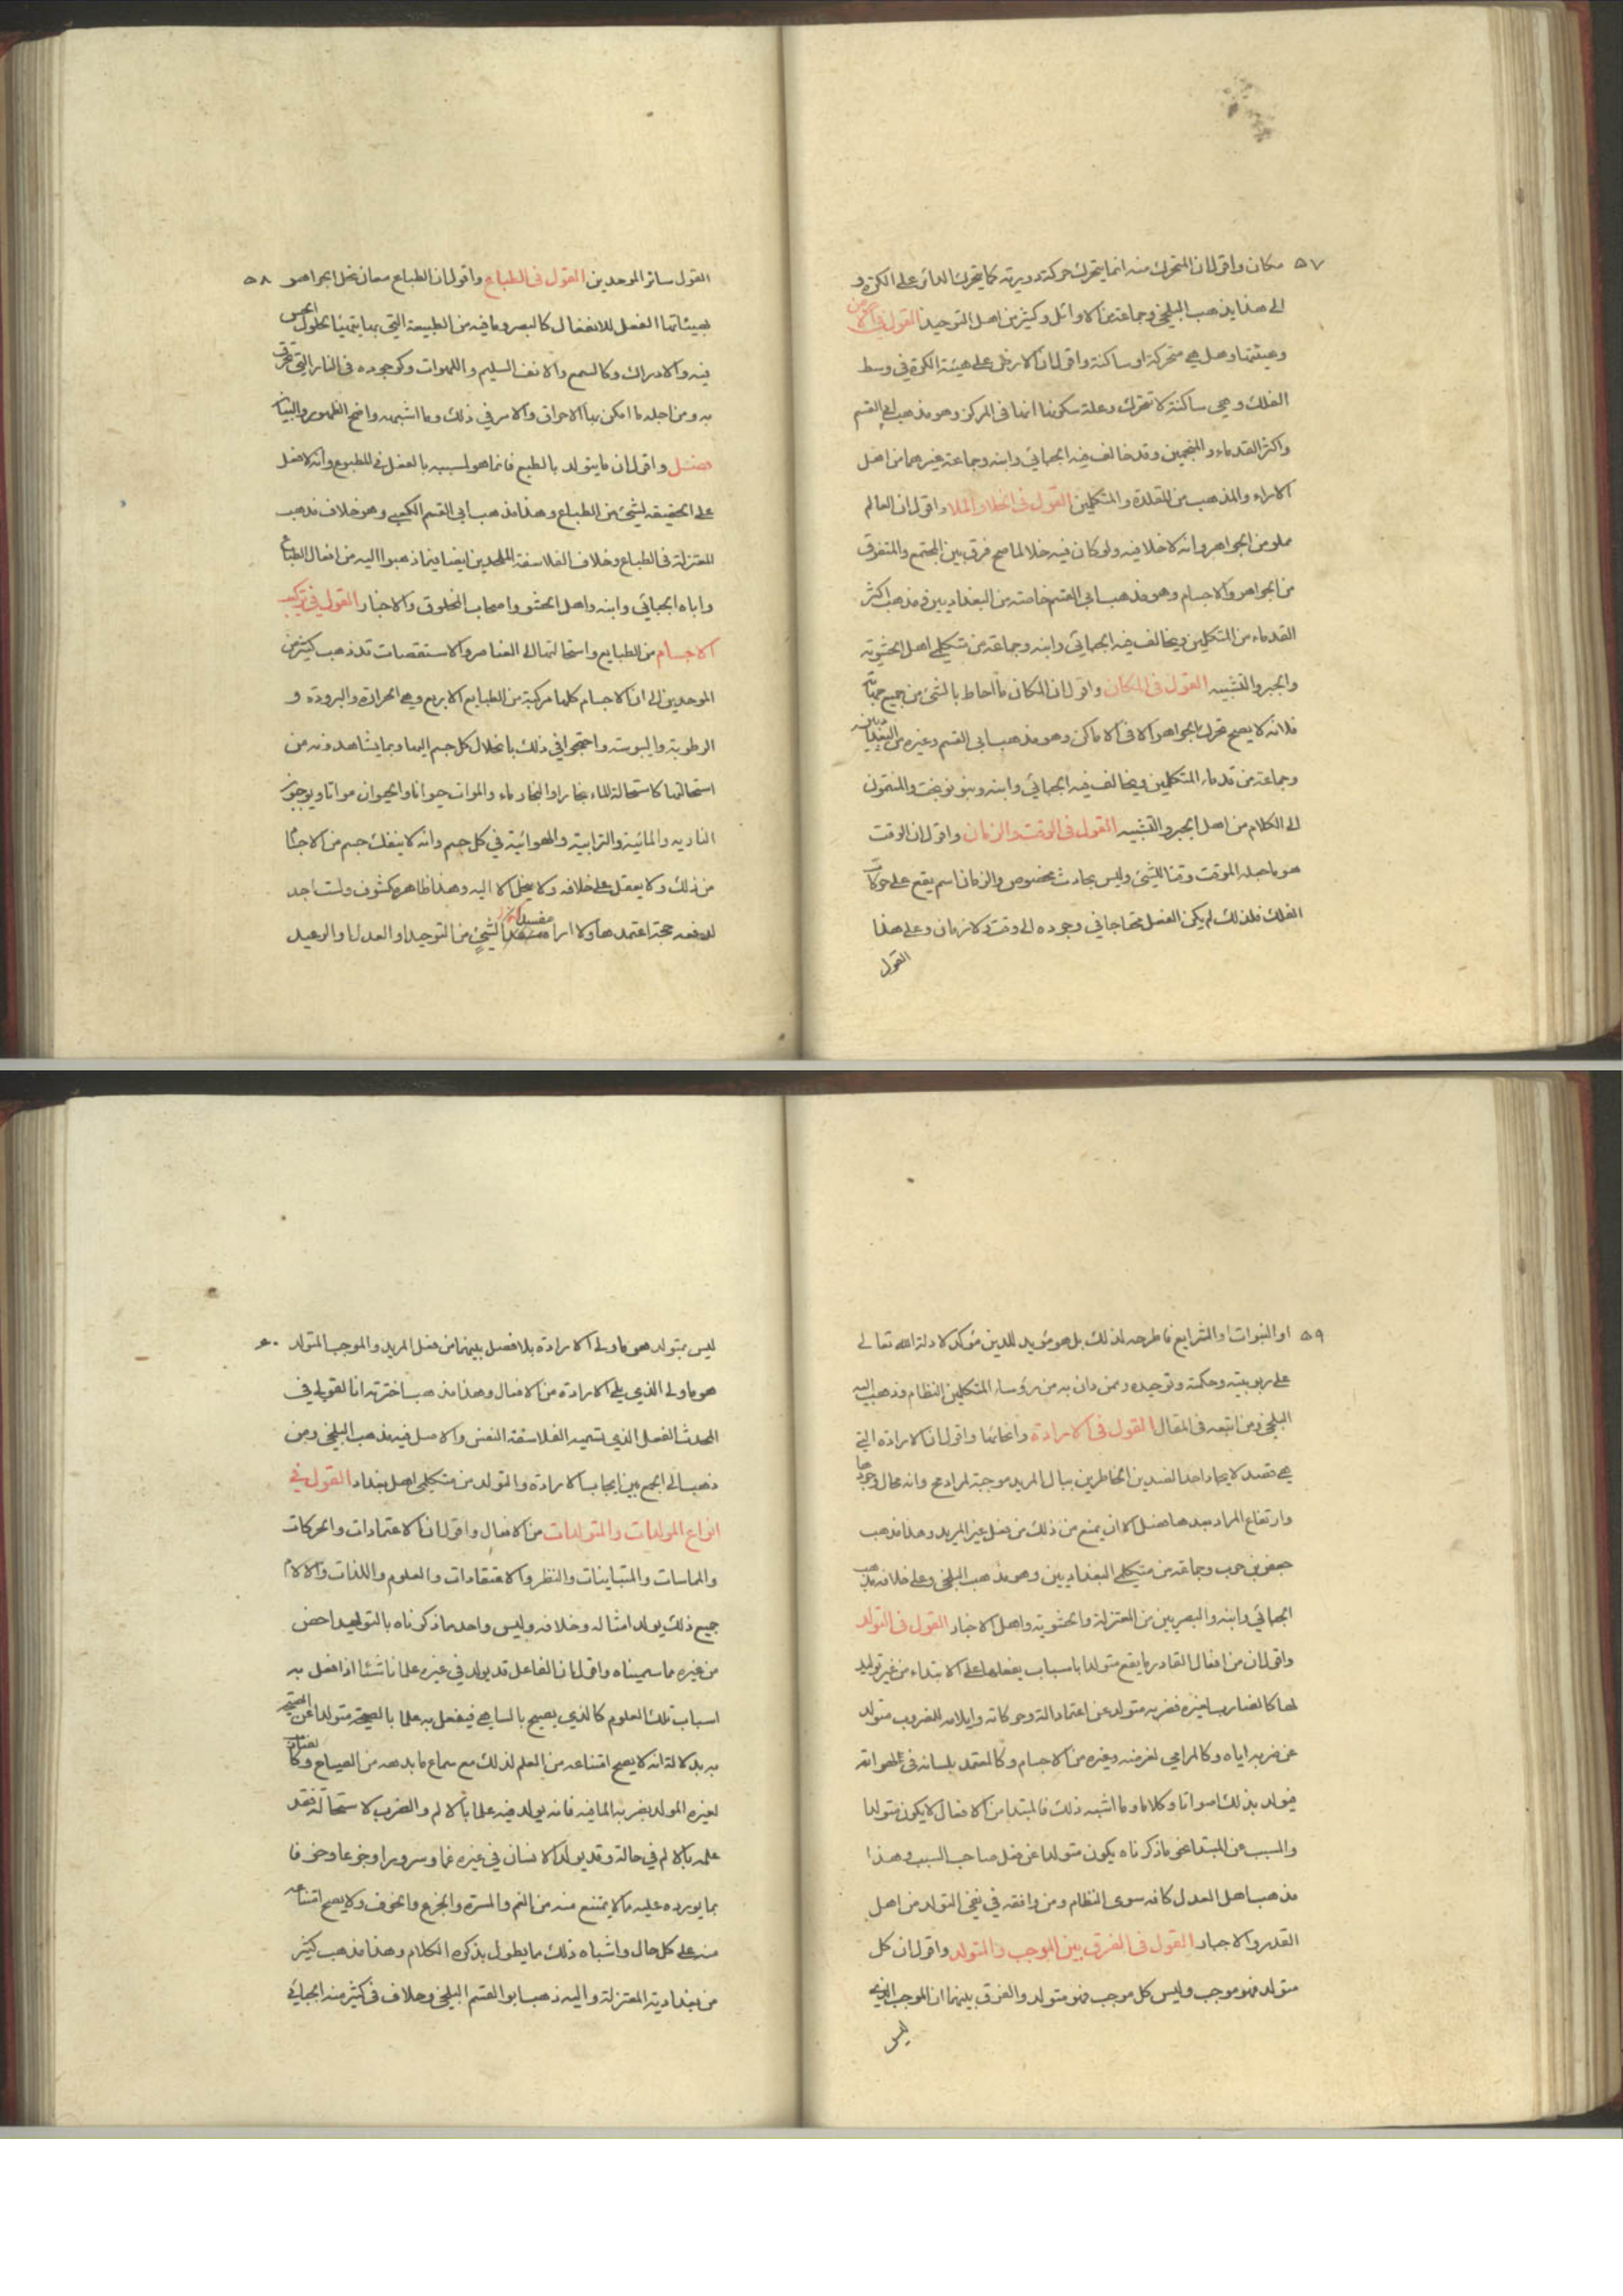 ٥٧ مكان واقول ان المتحرك منه انما يتحرك حركة دويرته كما يتحرك الدائر على الكرة و
الى هذا يذهب البلخي وجماعة من الاوائل وكثير من اهل التوحيد القول في الارض
وهيئتها وهل هي متحركة او ساكنة واقول ان الارض على هيئة الكرة في وسط
الفلك وهي ساكنة لا تتحرك وعلة سكونها انها فى المركز وهو مذهب ابي القسم
واكثر القدماء والمنجمين وقد خالف فيه الجبائي وابنه وجماعة غيرهما من اهل
الاراء والمذهب من المقلدة والمتكلمين القول فى الخلا والملا واقول ان العالم
مملو من الجواهر وانه لا خلا فيه ولو كان فيه خلا لما صح فرق بين المجتمع والمتفرق
من الجواهر والاجسام وهو مذهب ابي القسم خاصته من البغداديين ومذهب اكثر
القدماء من المتكلمين ويخالف فيه الجبائي وابنه وجماعة من متكلمي اهل الحشوية
والجبر والتشبيه القول فى المكان واقول ان المكان ما احاط بالشئ من جميع جهاته
فلانه لا يصح تحرك الجواهر الا فى الاماكن وهو مذهب ابي القسم وغيره من البغداديين
وجماعة من قدماء المتكلمين ويخالف فيه الجبائي وابنه وبنو نوبخت والمنتمون
الى الكلام من اهل الجبر والتشبيه القول فى الوقت والزمان واقول ان الوقت
هو ما جعله الموقت وقتا للشئ وليس بحادث مخصوص والزمان اسم يقع على حركات
الفلك فلذلك لم يكن الفعل محتاجا في وجوده الى وقت ولا زمان وعلى هذا
القول
القول سائر الموحدين القول فى الطباع واقول ان الطباع معان تحل الجواهر ٥٨
يتهيأ بها الفعل للانفعال كالبصر وما فيه من الطبيعة التي بها يتهيأ لحلول الحس
فيه والادراك وكالسمع والانف السليم واللهوات وكوجوده فى النار التي تحرق
به ومن اجله ما امكن بها الاحراق والامر في ذلك وما اشبهه واضح الظهور والبيان
فصل واقول ان ما يتولد بالطبع فانما هو لمسببه بالفعل في المطبوع وانه لا فعل
على الحقيقه لشئ من الطباع وهذا مذهب ابي القسم الكعبي وهو خلاف مذهب
المعتزلة فى الطباع وخلاف الفلاسفة الملحدين ايضا فيما ذهبوا اليه من افعال الطباع
واباه الجبائي وابنه واهل الحشو واصحاب المخلوق والاجبار القول في تركب
الاجسام من الطبايع واستحالتها الى العناصر والاستقصات قد ذهب كثير من
الموحدين الى ان الاجسام كلها مركبة من الطبايع الاربع وهي الحرارة والبرودة و
الرطوبة واليبوسة واحتجوا في ذلك بانحلال كل جسم اليها وبما يشاهدونه من
استحالتها كاستحالة الماء بخارا والبخار ماء والموات حيوانا والحيوان مواتا وبوجود
الناريه والمائية والترابية والهوائية في كل جسم وانه لا ينفك جسم من الاجسام
من ذلك ولا يعقل على خلافه ولا ينحل الا اليه وهذا ظاهر مكشوف ولست اجد
لدفعه حجة اعتمدها ولا اراه مفسدا لشئ من التوحيد او العدل او الوعيد
٥٩ او النبوات او الشرايع فاطرحه لذلك بل هو مؤيد للدين مؤكد لادلة الله تعالى
على ربوبيته وحكمته وتوحيده وممن دان به من رؤساء المتكلمين النظام وذهب اليه
البلخي ومن اتبعه فى المقال القول فى الارادة وايجابها واقول ان الارادة التي
هي قصد لايجاد احد الضدين الخاطرين ببال المريد موجبة لمرادها وانه محال وجودها
وارتفاع المراد بعدها بفصل الا ان يمنع من ذلك من فعل غير المريد وهذا مذهب
جعفر بن حرب وجماعة من متكلمي البغداديين وهو مذهب البلخي وعلى خلافه مذهب
الجبائي وابنه والبصريين من المعتزلة والحشوية واهل الاجبار القول فى التولد
واقول ان من افعال القادر ما يقع متولدا باسباب يفعلها على الابتداء من غير توليد
لها كالضارب لغيره فضربه متولد عن اعتماداته وحركاته وايلامه للمضروب متولد
عن ضربه اياه وكالرامي لغرضه وغيره من الاجسام وكالمعتمد بلسانه فى لهواته
فيولد بذلك اصواتا وكلاما وما اشبه ذلك فالمبتدا من الافعال لا يكون متولدا
والمسبب عن المبتدا نحو ما ذكرناه يكون متولدا عن فعل صاحب السبب وهذا
مذهب اهل العدل كافه سوى النظام ومن وافقه في نفي التولد من اهل
القدر والاجبار القول فى الفرق بين الموجب والمتولد واقول ان كل
متولد فهو موجب وليس كل موجب فهو متولد والفرق بينهما ان الموجب الذي
ليس
ليس بمتولد هو ما ولى الارادة بلا فصل بينهما من فعل المريد والموجب المتولد ٦٠
هو ما ولى الذي يلي الارادة من الافعال وهذا مذهب اخترته انا لقولي في
المحدث الفعل الذي تسميه الفلاسفة النفس والاصل فيه مذهب البلخي ومن
ذهب الى الجمع بين ايجاب الارادة والتولد من متكلمي اهل بغداد القول في
انواع المولدات والمتولدات من الافعال واقول ان الاعتمادات والحركات
والمماسات والمتباينات والنظر والاعتقادات والعلوم واللذات والالام
جميع ذلك يولد امثاله وخلافه وليس واحد مما ذكرناه بالتوليد اخص
من غيره مما سميناه واقول ان الفاعل قد يولد في غيره علما ناشئا اذا فعل به
اسباب تلك العلوم كالذي يصيح بالساهي فيفعل به علما بالصيحة متولدا عن الصيحة
به بدلالة انه لا يصح امتناعه من العلم لذلك مع سماع ما بدهه من الصياح وكالضارب
لغيره المولد بضربه الما فيه فانه يولد فيه علما بالالم والضرب لاستحالة فقد
علمه بالالم في حالة وقد يولد الانسان في غيره غما وسرورا وجزعا وخوفا
بما يورده عليه مالا يمتنع منه من الغم والمسرة والجزع والخوف ولا يصح امتناعه
منه على كل حال واشباه ذلك مما يطول بذكره الكلام وهذا مذهب كثير
من بغدادية المعتزلة واليه ذهب ابو القسم البلخي وخلاف فى كثير منه الجبائي